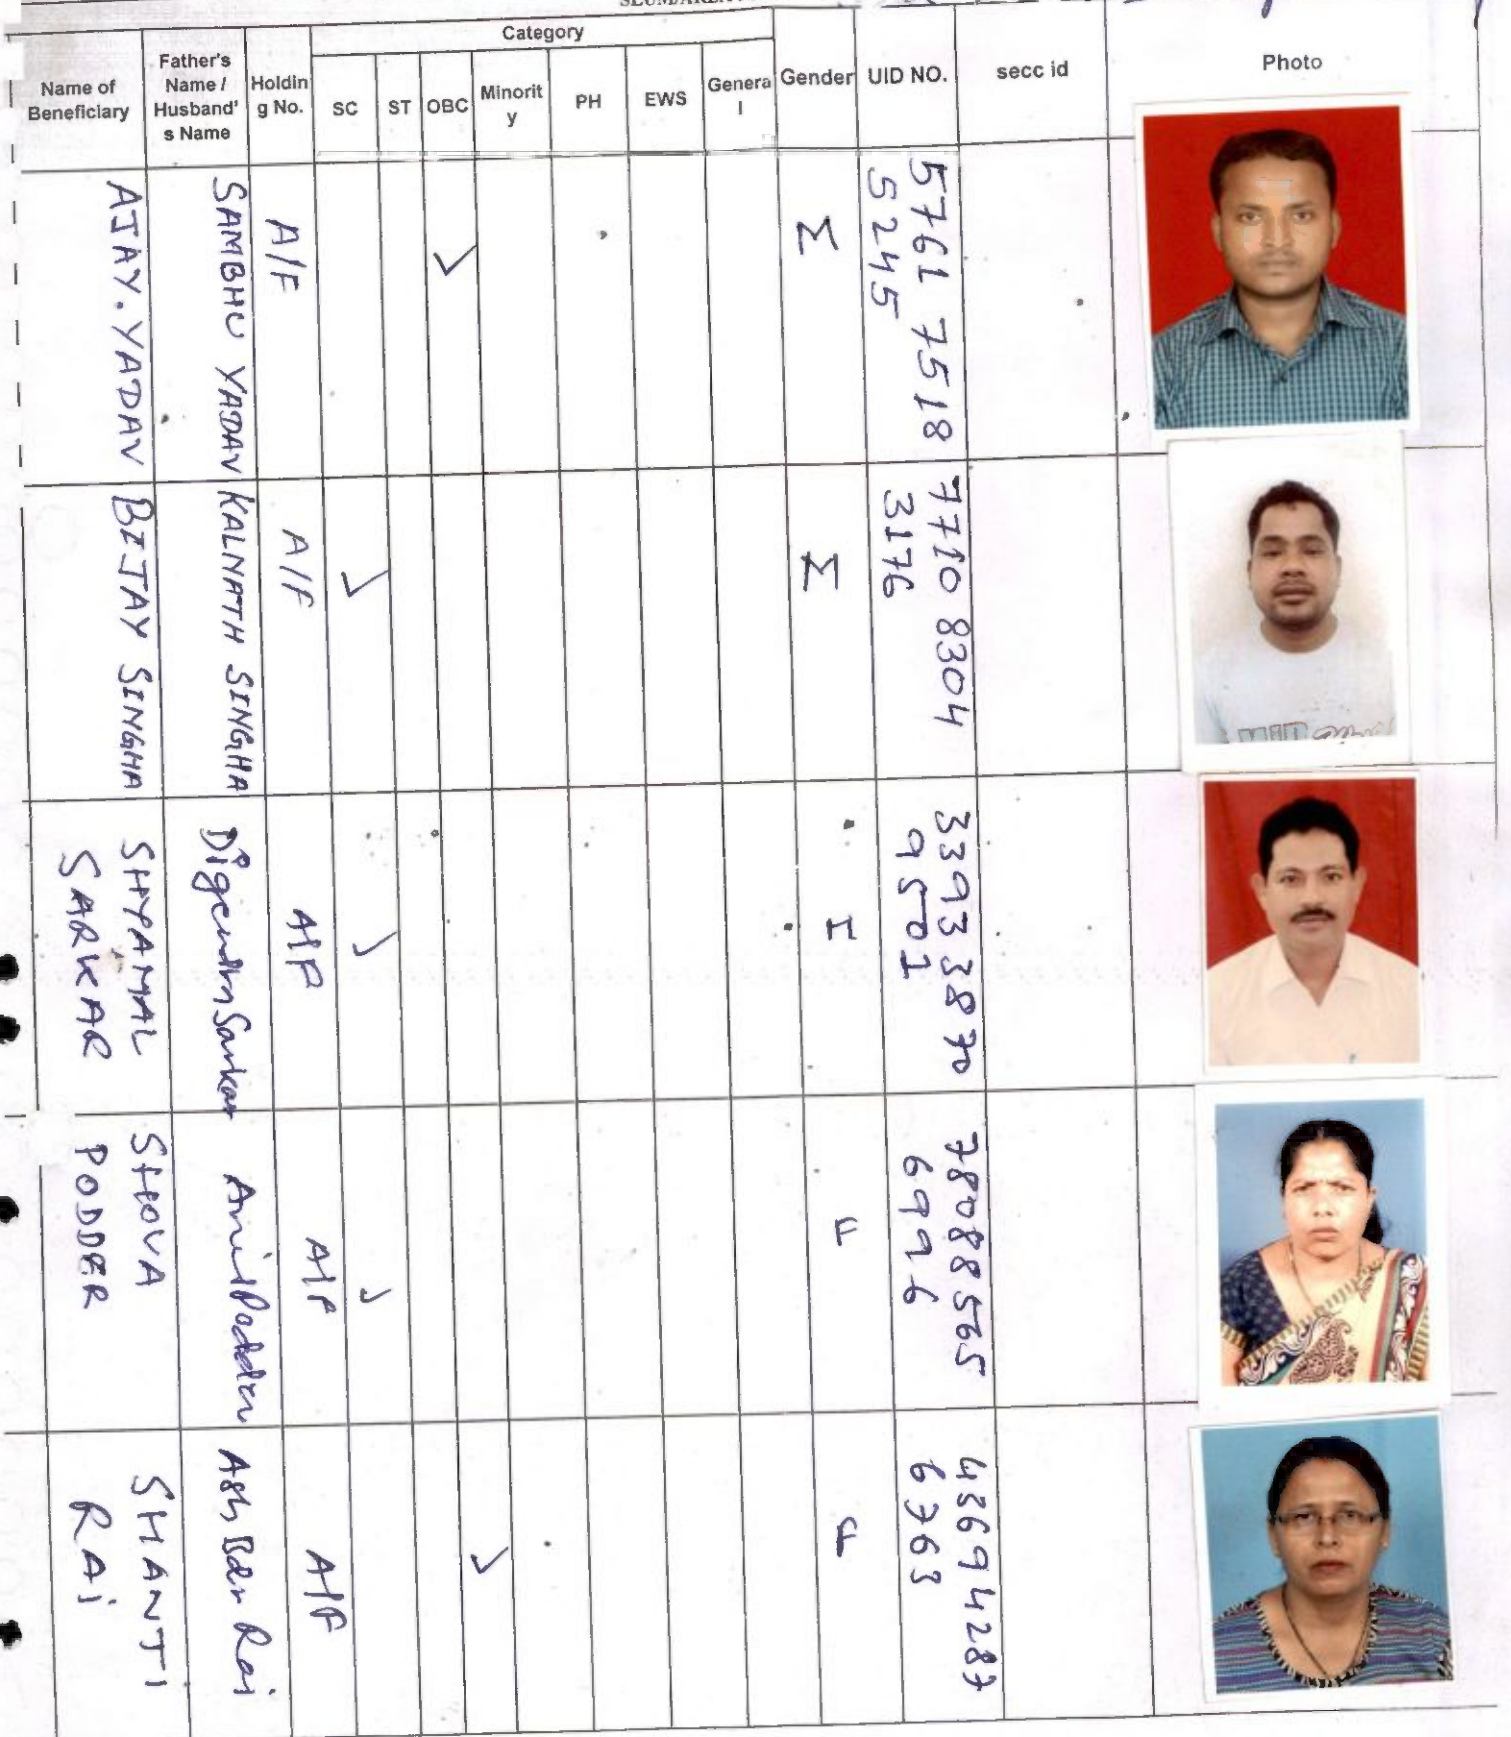 Category
Name of Beneficiary
Father's Name / Husband's Name
Holding No.
SC
ST
OBC
Minority
PH
EWS
General
Gender
UID NO.
secc id
Photo
AJAY. YADAV
SAMBHU YADAV
A/F
✓
M
5761 7518
5245
BIJAY SINGHA
KALNATH SINGHA
A/F
✓
M
7710 8304
3176
SHYAMAL
SARKAR
Sarkar
A/F
✓
M
3393 3870
9501
SHOVA
PODDER
Anil Podder
A/F
✓
F
7808 8565
6996
SHANTI
RAI
Ash Bdr Rai
A/F
✓
F
4287